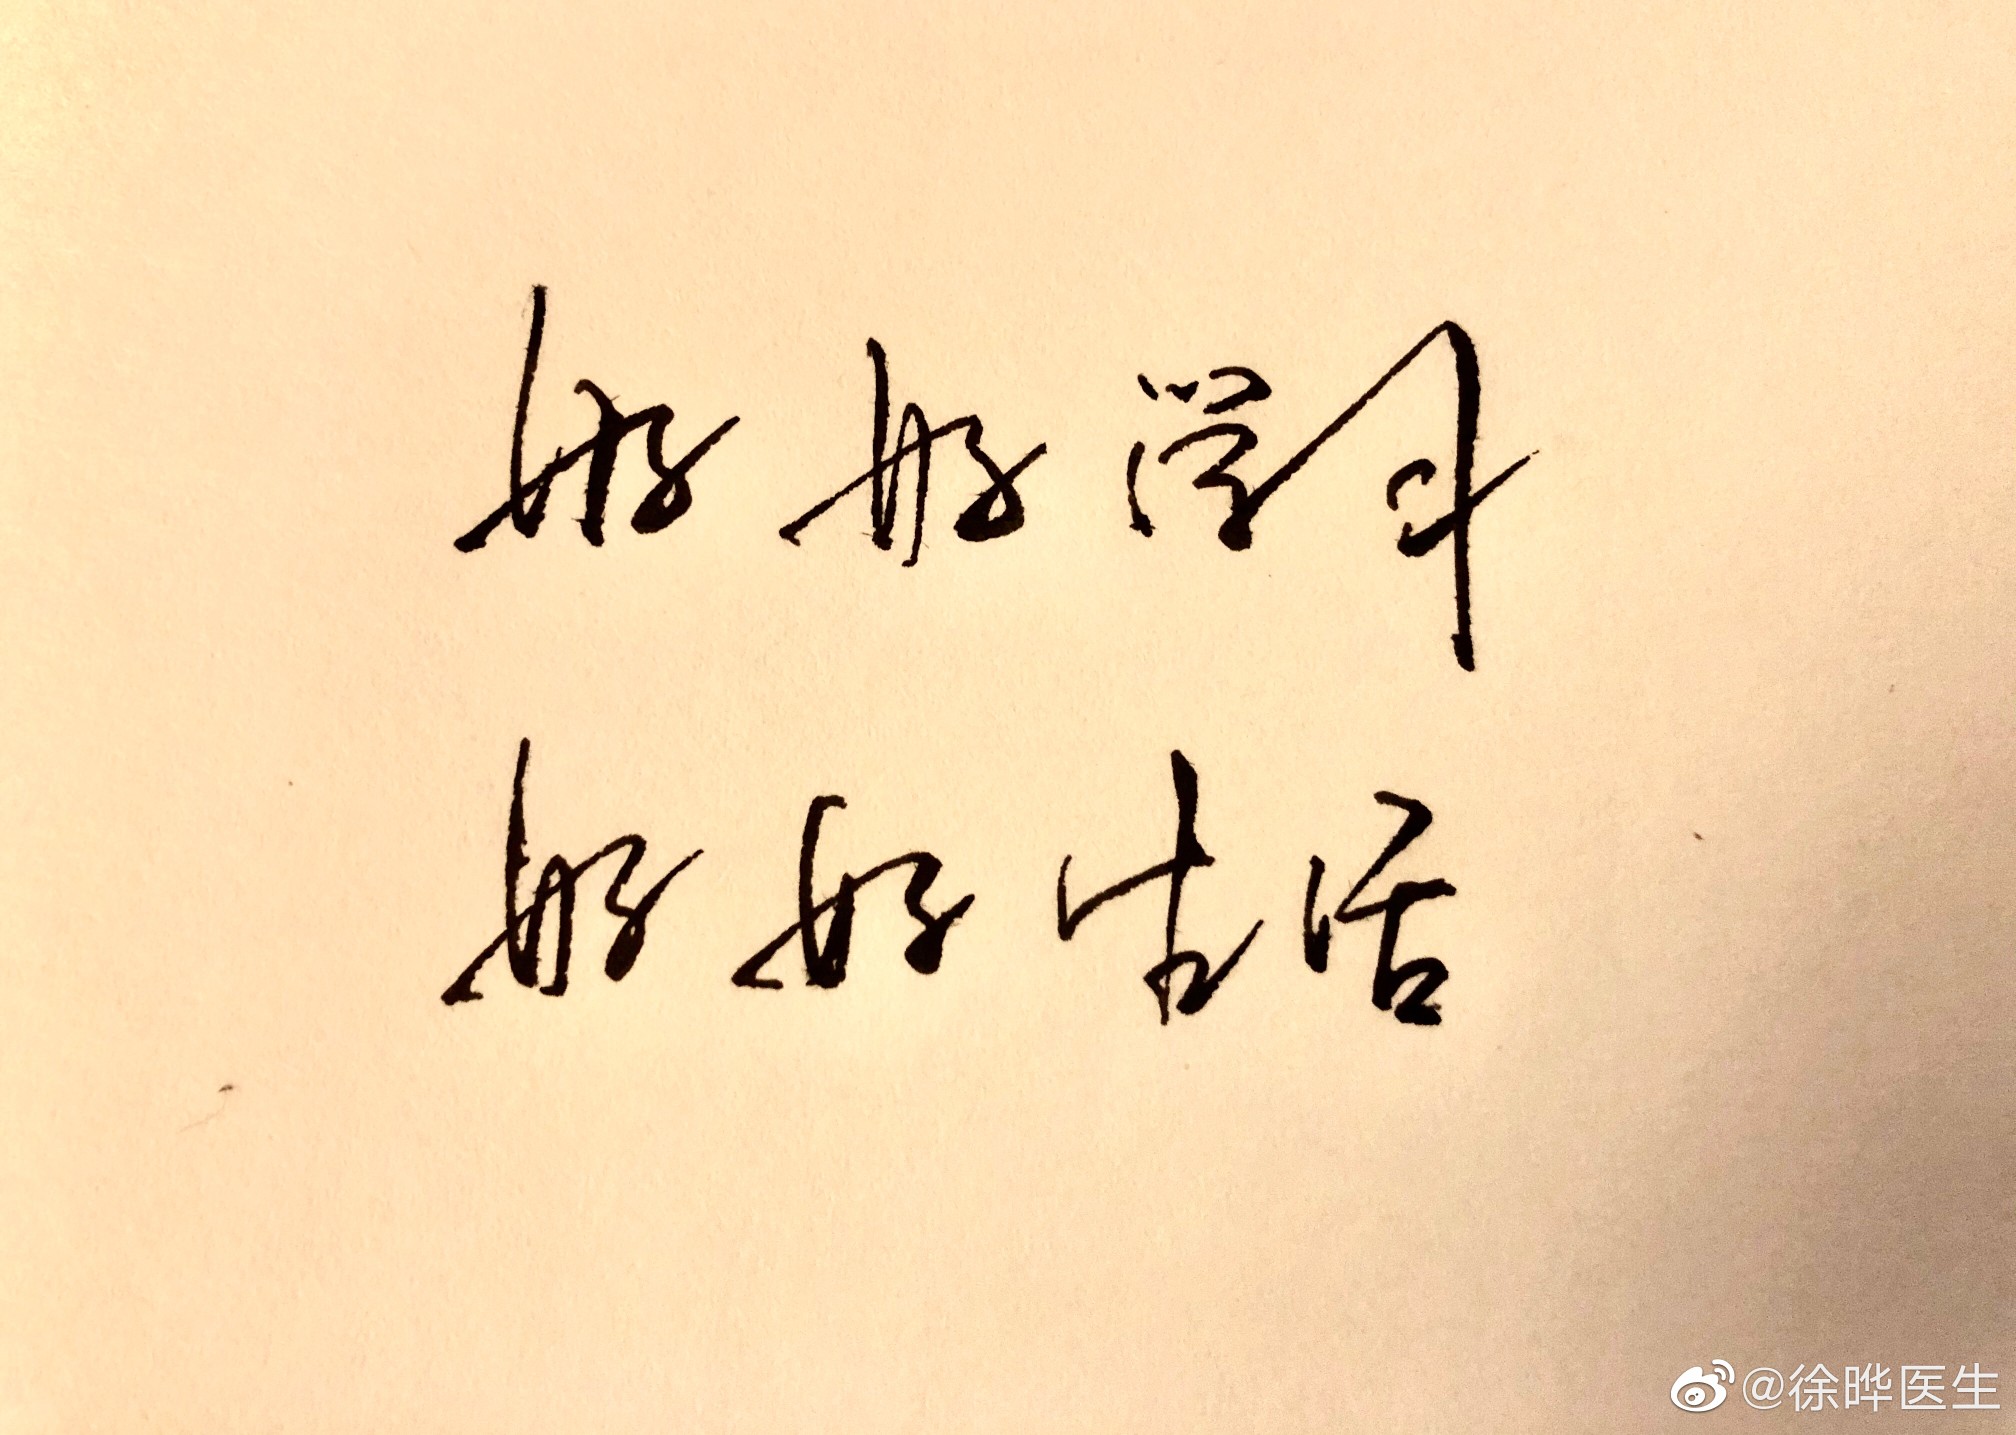 好好学习
好好生活
@徐晔医生